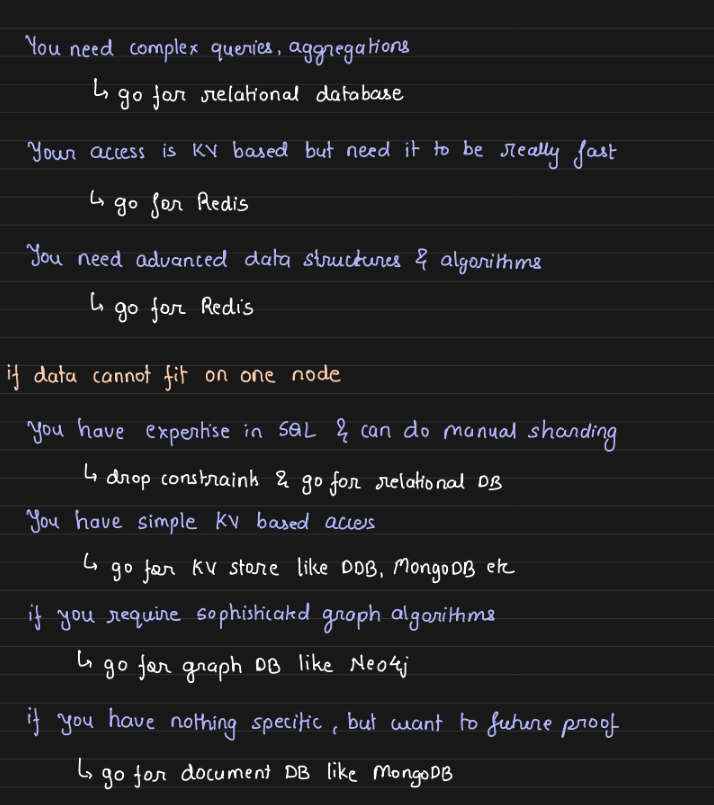 You need complex queries, aggregations
↳ go for relational database
Your access is KV based but need it to be really fast
↳ go for Redis
You need advanced data structures & algorithms
↳ go for Redis
if data cannot fit on one node
you have expertise in SQL & can do manual sharding
↳ drop constraints & go for relational DB
You have simple KV based access
↳ go for KV store like DDB, MongoDB etc
if you require sophisticated graph algorithms
↳ go for graph DB like Neo4j
if you have nothing specific, but want to future proof
↳ go for document DB like MongoDB